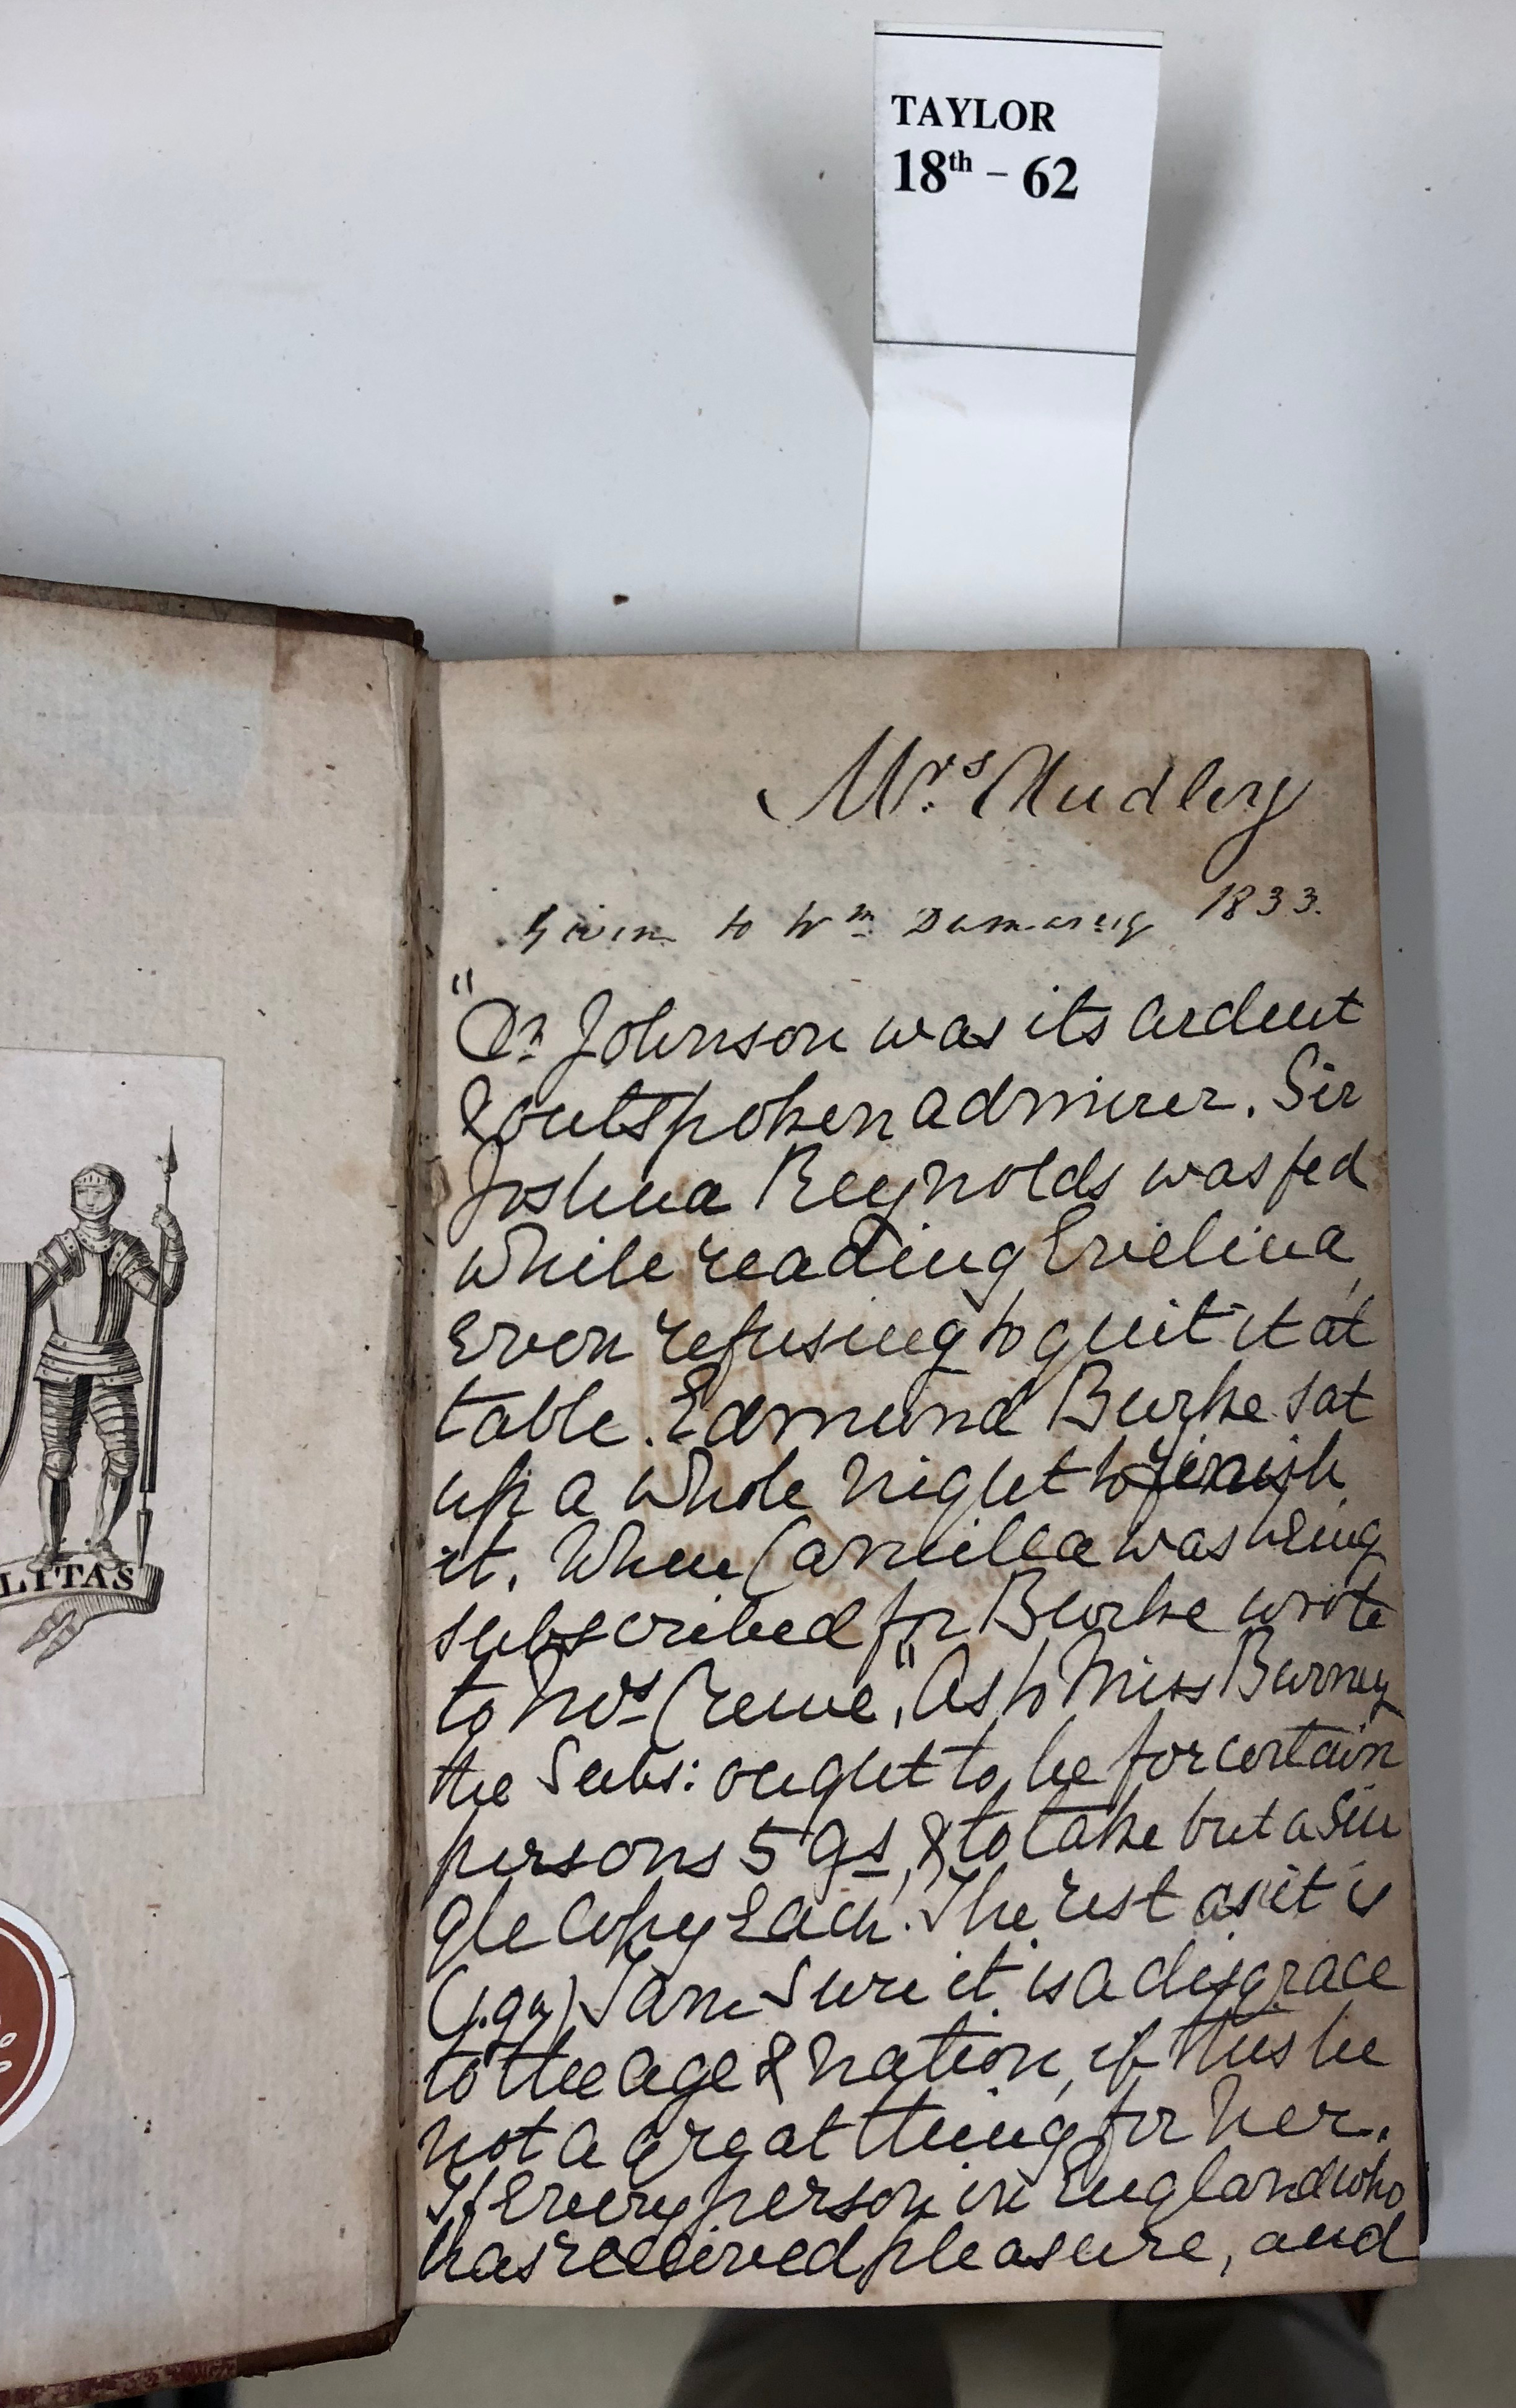 TAYLOR
18th – 62
LITAS
Mrs Mudley
Given to Wm 1833.
"Dr Johnson was its ardent
& outspoken admirer. Sir
Joshua Reynolds was fed
while reading Evelina,
Even refusing to quit it at
table. Edmund Burke sat
up a whole night to finish
it. When Camilla was being
subscribed for Burke wrote
to Mrs Crewe, "As to Miss Burney
the Subs: ought to be for certain
persons 5 gs, & to take but a Sin
gle Copy Each. The rest as it is
(1.gn) I am Sure it is a disgrace
to the age & nation, if this be
not a great thing for her.
If Every person in England who
has received pleasure, and